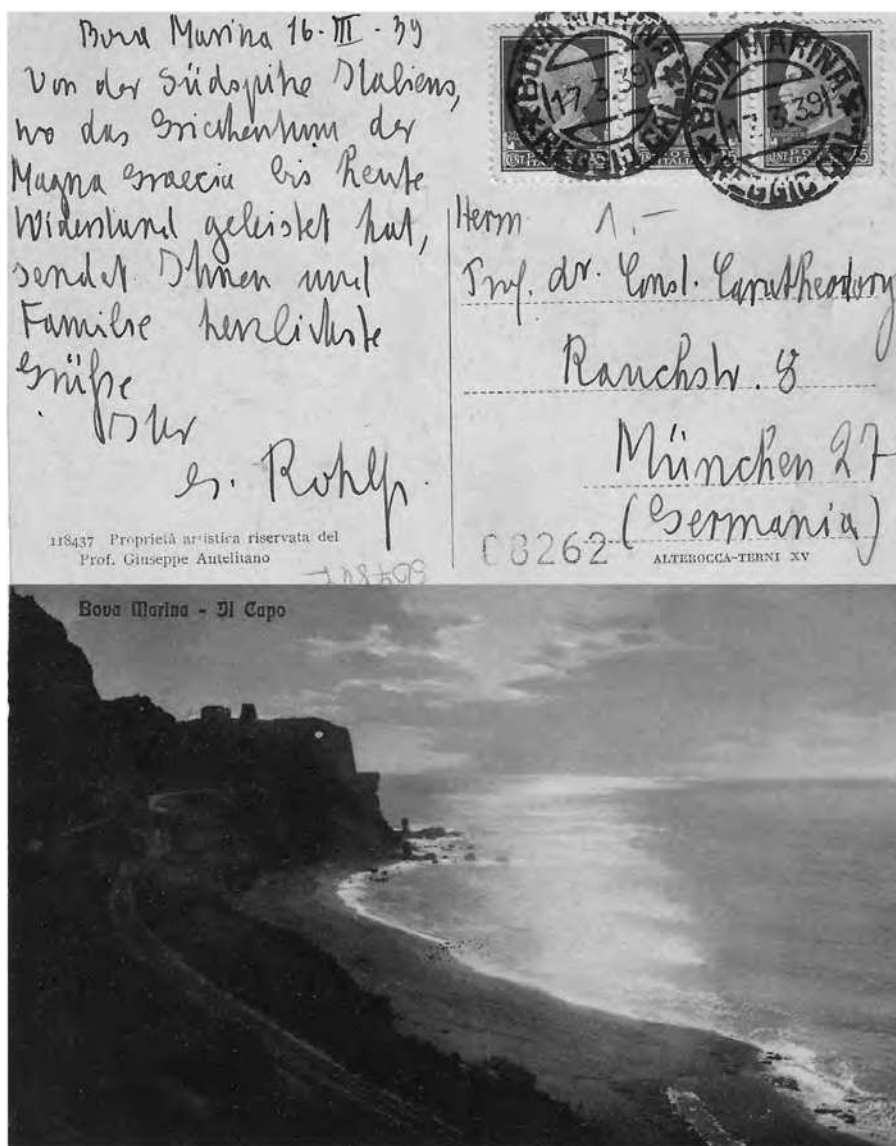 Bova Marina 16. III. 39
Von der Südspitze Italiens,
wo das Griechentum der
Magna Graecia bis heute
Widerstand geleistet hat,
sendet Ihnen und
Familie herzlichste
Grüße
Ihr
G. Rohlfs.
118437 Proprietà artistica riservata del
Prof. Giuseppe Autelitano
BOVA MARINA
17.3.39
REGGIO CAL.
BOVA MARINA
17.3.39
REGGIO CAL.
Herrn 1.-
Prof. Dr. Const. Caratheodory
Rauchstr. 8
München 27
(Germania)
08262
ALTEROCCA-TERNI XV
Bova Marina - Il Capo